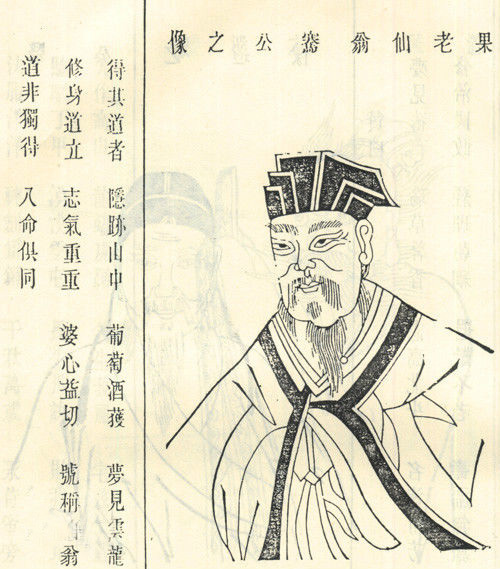 果老仙翁公之像
得其道者 隱跡山中 葡萄酒獲 夢見雲龍
修身道立 志氣重重 婆心益切 號稱翁
道非獨得 命俱同